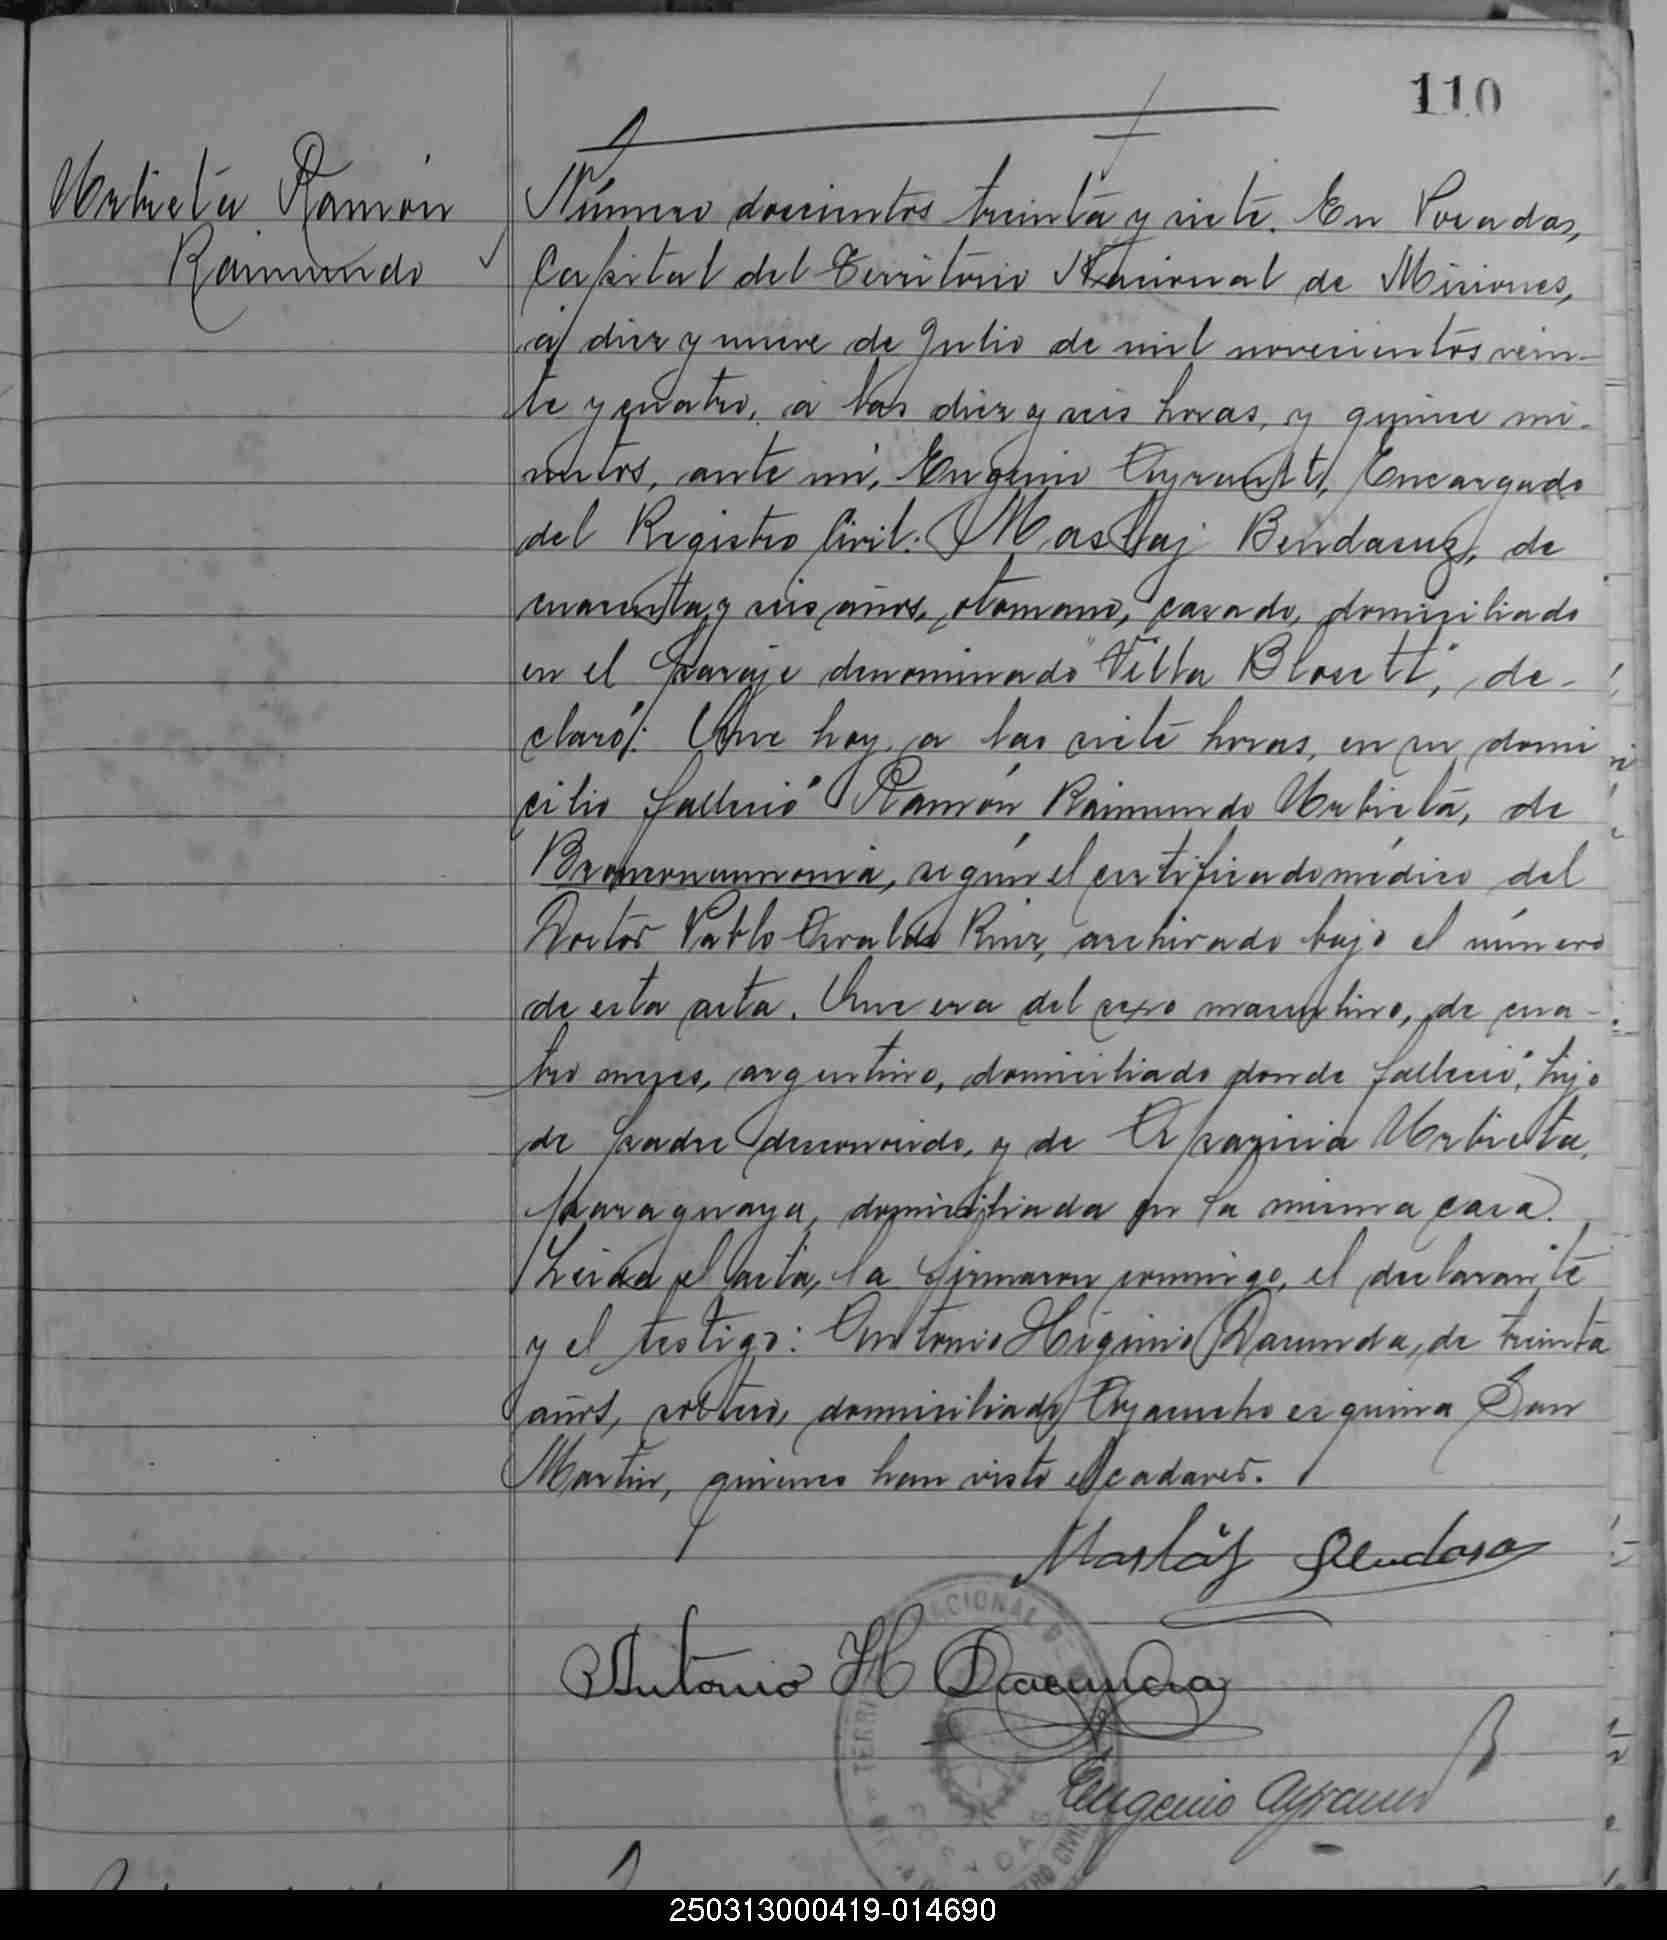 110
Urbieta Ramón
Raimundo
Número doscientos treinta y siete. En Posadas,
Capital del Territorio Nacional de Misiones,
a diez y nueve de Julio de mil novecientos vein-
te y cuatro, a las diez y seis horas, y quince mi-
nutos, ante mí, Eugenio Ayrault, Encargado
del Registro Civil: Maslaj, de
cuarenta y seis años, otomano, casado, domiciliado
en el paraje denominado "Villa Blosett", de-
claró: Que hoy, a las siete horas, en su domi
cilio falleció Ramón Raimundo Urbieta, de
Bronconeumonia, según el certificado médico del
Doctor Pablo Osvaldo Ruiz, archivado bajo el número
de esta acta. Que era del sexo masculino, de cua-
tro meses, argentino, domiciliado donde falleció, hijo
de padre desconocido, y de Aparicia Urbieta,
paraguaya, domiciliada en la misma casa.
Leida el acta, la firmaron conmigo, el declarante
y el testigo: Antonio Higinio Dacunda, de treinta
años, soltero, domiciliado Ayacucho esquina San
Martin, quienes han visto el cadaver.
Antonio H Dacunda
Eugenio Ayrault
250313000419-014690